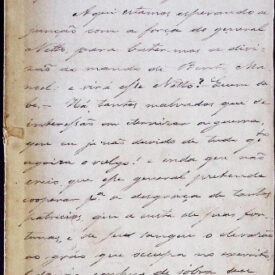 Aqui estamos esperando a
juncção com a força do general
Netto, para batermos a divi-
zão do mando de Bento Ma-
noel: e virá esse Netto? Quem sa-
be. — Há tantos malvados que se
interessão em eternizar a guerra,
que eu já não duvido de tudo qto
agoira o velho! e ainda que não
creio que esse general pretenda
cooperar pa a desgraça de tantos
patricios, que á custa de suas for-
tunas, e de seu sangue o elevarão
ao gráo que occupa no exercito